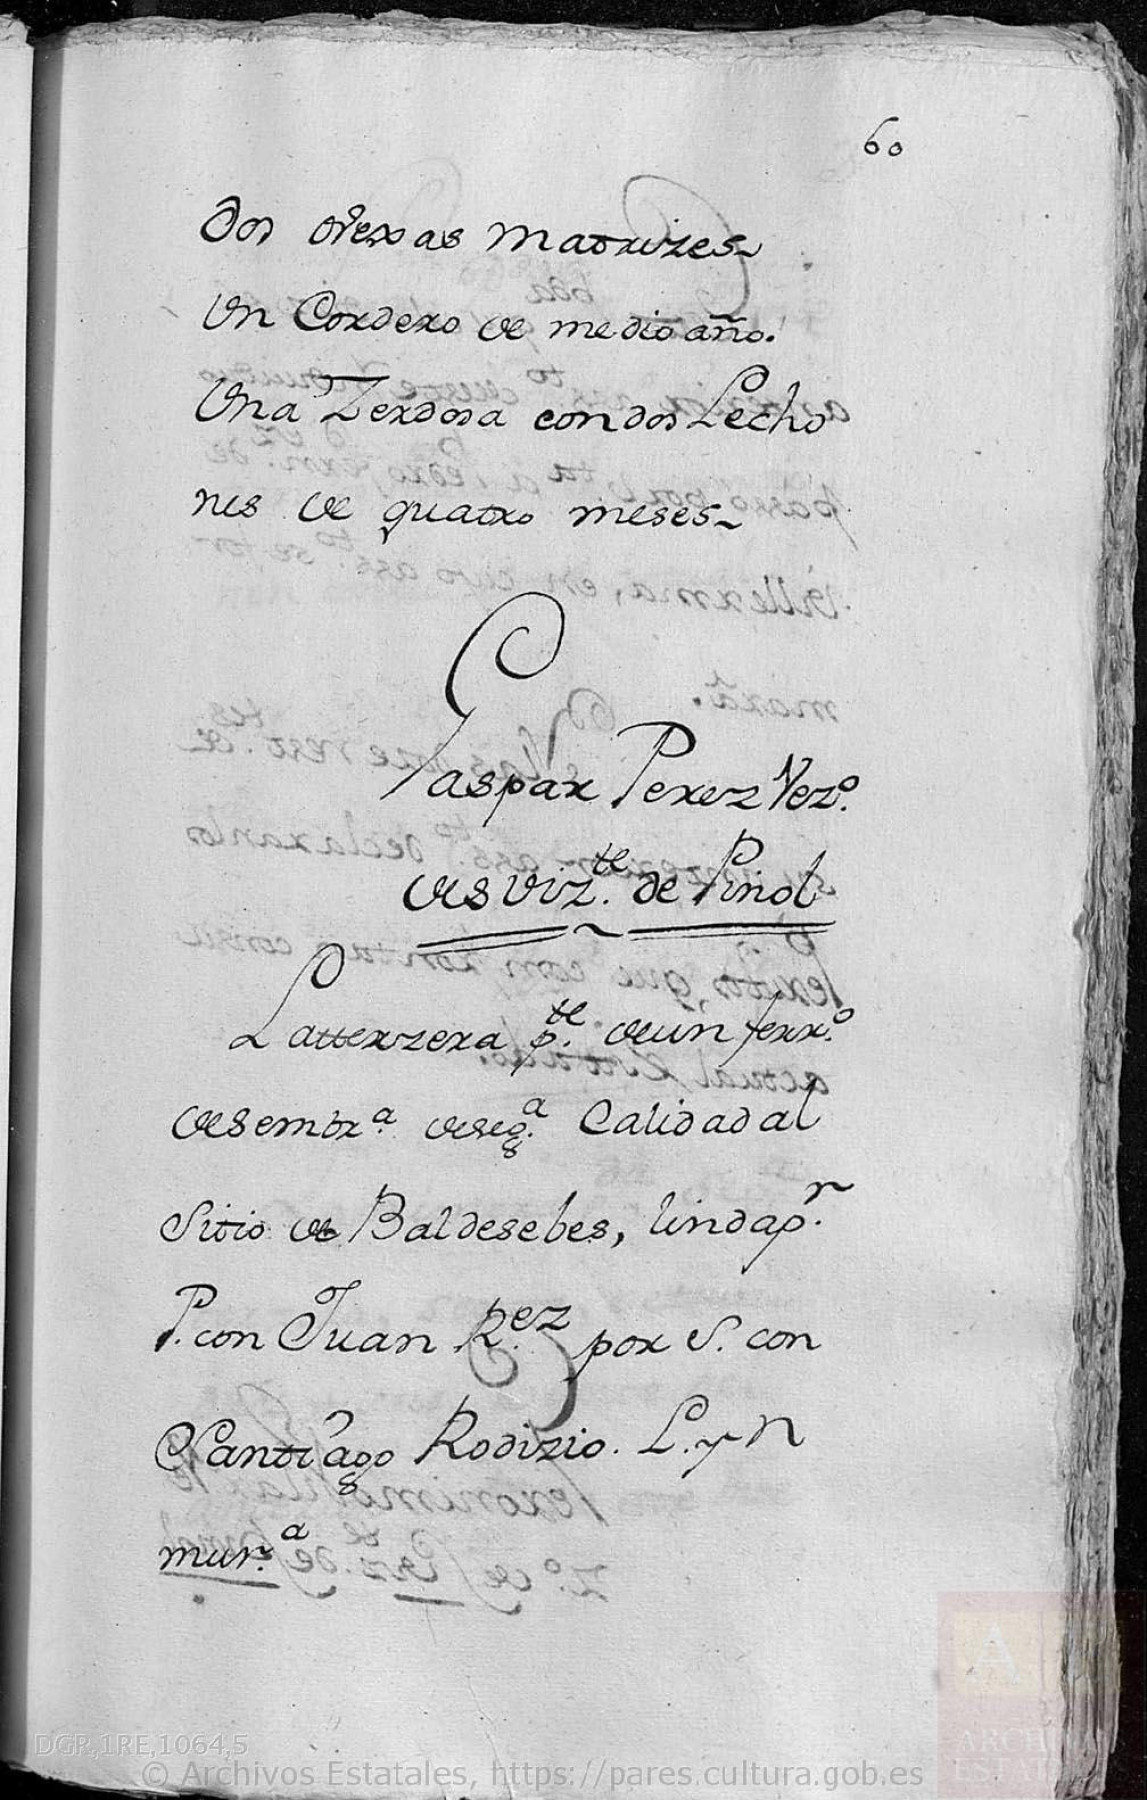 60
Dos obexas matrizes
Un Cordero de medio año.
Una Zerdosa con dos Lecho
nes de quatro meses
Gaspar Perez Vezº.
de S Viz.te de Pinol
La tterzera p.te de un ferrº.
de sembr.a de seg.a Calidad al
Sitio de Baldesebes, linda p.r
P. con Juan R.ez por S. con
Santiago Rodizio. L. y N
mur.a
DGR,1RE,1064,5
© Archivos Estatales, https://pares.cultura.gob.es
ARCHIVOS
ESTATALES